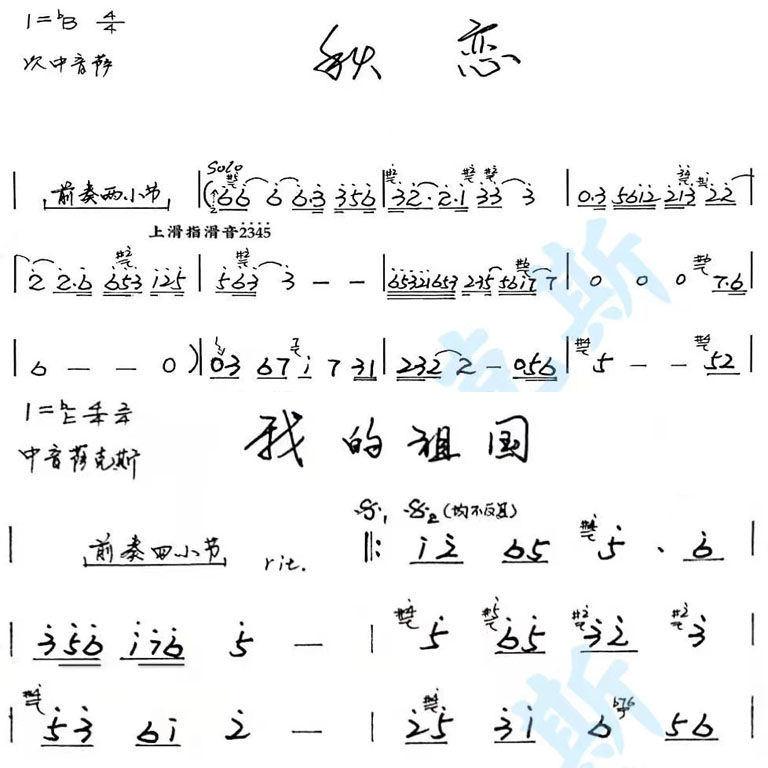 1=ᵇB 4/4
秋 恋
次中音萨
Solo
| 前奏两小节 | (6 6 6 6.3 3 5 6 | 3 2. 2.1 3 3 3 | 0.3 5 6 1 2 2 1 3 2 2 |
上滑指滑音2345
2 2.6 6 5 3 1 2 5 | 5 6 3 3 - - | 6 5 3 2 1 6 5 3 2 3 5 5 6 1 7 7 | 0 0 0 7.6 |
| 6 - - 0 ) | 0 3 6 7 1 7 3 1 | 2 3 2 2 - 0 5 6 | 5 - - 5 2 |
1=ᵇE 4/4 2/4
我的祖国
中音萨克斯
𝄋1 𝄋2 (均不反复)
| 前奏四小节 rit. ‖: 1 2 6 5 5 . 6 |
| 3 5 6 1 7 6 5 - | 5 6 5 3 2 3 |
| 5 3 6 1 2 - | 2 5 3 1 6 5 6
克斯
斯